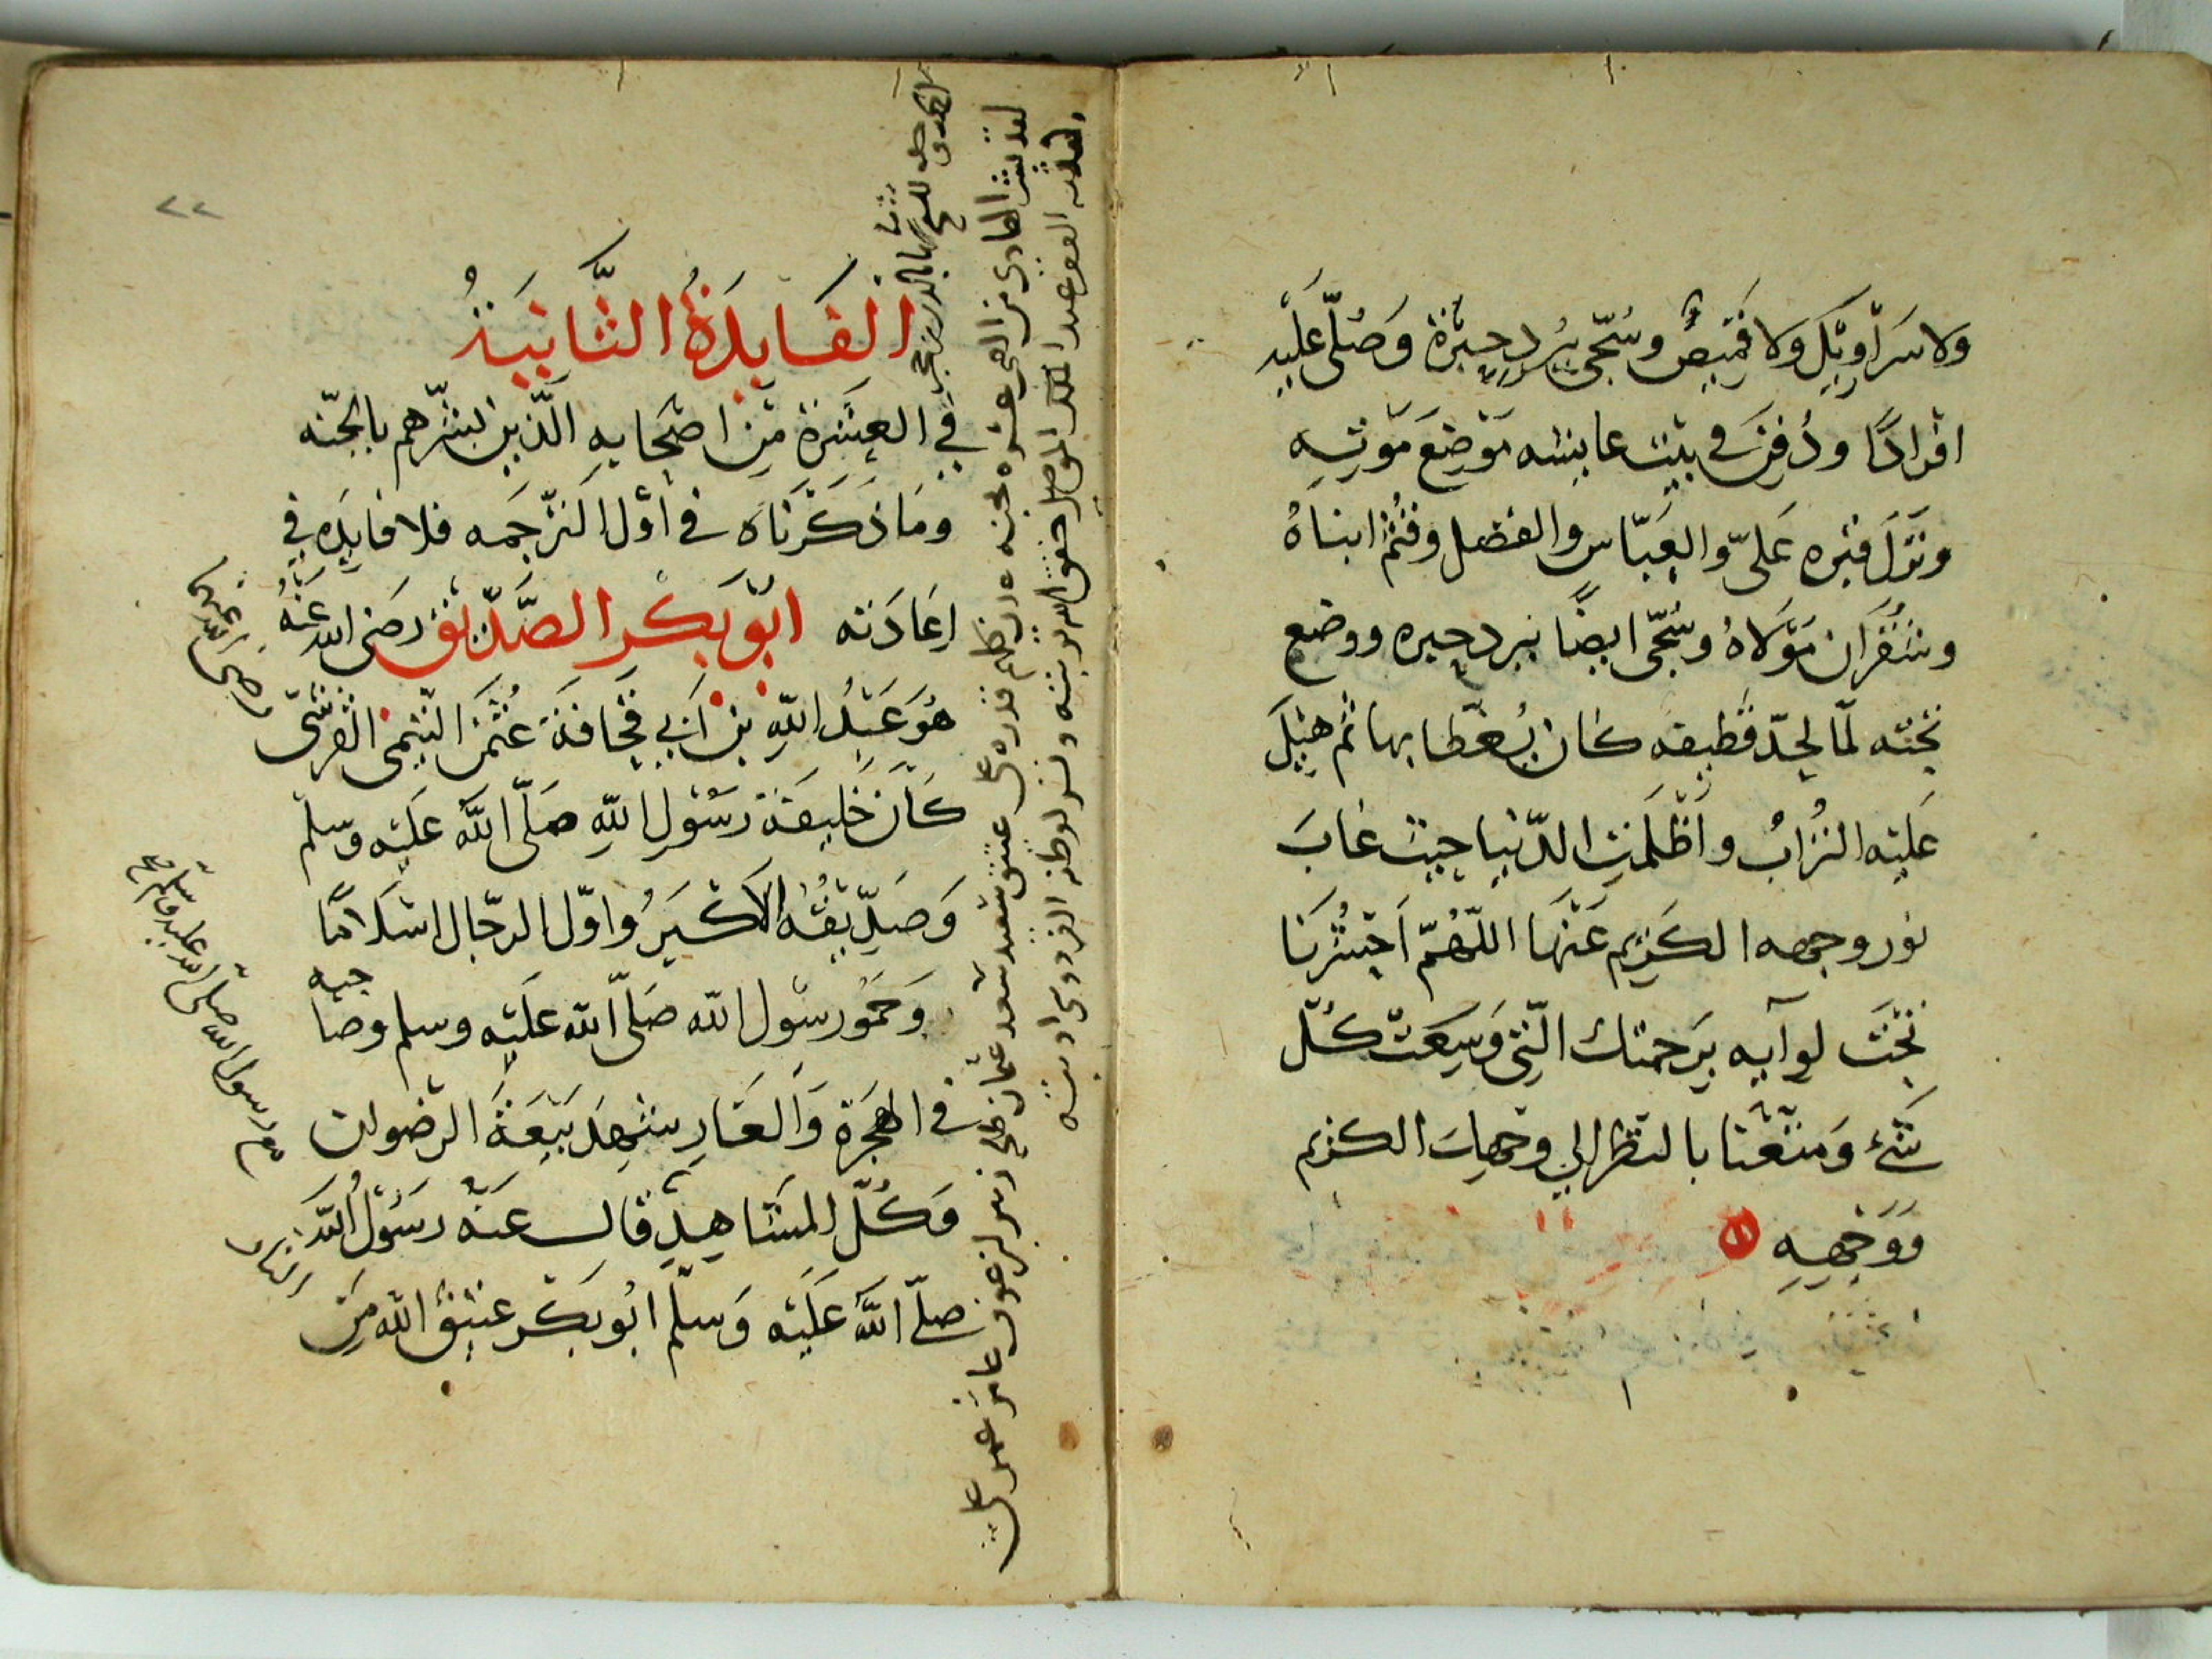 ولا سَرَاوِيْل وَلا قميصٌ وسُجّي بِبُردِ حِبَرَة وَصُلّى عَلَيْهِ
افرادًا ودُفِنَ في بيْت عايشه مَوْضِعَ مَوْتِهِ
ونَزَلَ قبْره عَلىّ والعَبّاس والفضل وقُثَمُ ابناهُ
وشُقْرَان مَوْلَاهُ وسُجّى ايضًا ببرد حبره ووضع
تحْته لمّا لحِدّ قطيفه كان يُغطّا بها ثم هِيْلَ
عَلَيْه التُرَابُ وأظْلَمَتِ الدّنيا حيث غابَ
نور وجهه الكَرِيم عَنْهَا اللّهُمّ احْشُرْنَا
تَحْتَ لوآيه بِرَحمتك الّتي وَسِعَتْ كُلّ
شَيْء وَمتّعْنا بالنظر الى وجْهِكَ الكريم
وَوَجْهِهِ
٢٢
الفَايِدَةُ الثَّانِيَةُ
في العشَرة مِن اصْحَابِهِ الّذين بشّرهم بالجنّه
ومَا ذكَرْنَاه في أوّل التّرجَمه فلا فايِدَه في
إعَادَته ابُو بَكْر الصِّدّيق رضَى الله عَنْهُ
هُوَ عَبْدُ اللهِ بن أَبِي قُحَافَةَ عُثْمَن التّيْمِى القرشىّ
كَانَ خَلِيفَةَ رَسُولِ اللهِ صَلّى اللهُ عَلَيْه وسلم
وَصِدِّيقُهُ الأَكْبَرُ وأوّل الرجَال اسْلَامًا
وَحَمُو رسُول الله صَلّى الله عَلَيْه وسلم وصَاحبه
في الهِجْرَة وَالغَارِ شهِدَ بَيْعَةَ الرضوان
وَكُلّ المَشَاهِدِ قال عَنْهُ رَسُولُ اللهِ
صلّى اللهُ عَلَيْه وَسلّم ابُو بكْر عتيقُ الله مِنَ
النار
رضى الله عنهما
حم رسول الله صلى الله عليه وسلم
لقد بشر الهادى من الصحب عشره بجنه عدن كلهم قدره على
عتيق سعيد سعد عثمان طلحه زبير بن عوف عامر عمر على